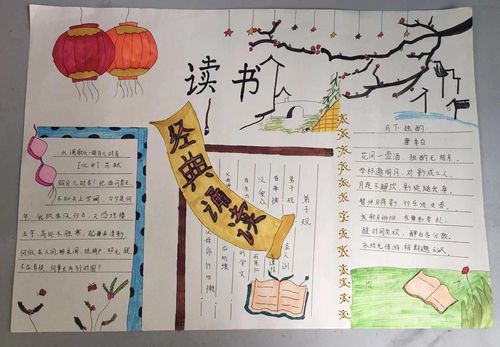 读书
经典诵读
水调歌头·明月几时有
[北宋] 苏轼
明月几时有？把酒问青天。
不知天上宫阙，今夕是何
年。我欲乘风归去，又恐琼楼
玉宇，高处不胜寒。起舞弄清影
何似在人间。转朱阁，低绮户，照无眠
不应有恨，何事长向别时圆？
弟子规
弟子规
圣人训
首孝悌
次谨信
泛爱众
而亲仁
有余力
则学文
父母呼
应勿缓
父母命
行勿懒
月下独酌
唐 李白
花间一壶酒，独酌无相亲。
举杯邀明月，对影成三人。
月既不解饮，影徒随我身。
暂伴月将影，行乐须及春。
我歌月徘徊，我舞影零乱。
醒时同交欢，醉后各分散。
永结无情游，相期邈云汉。